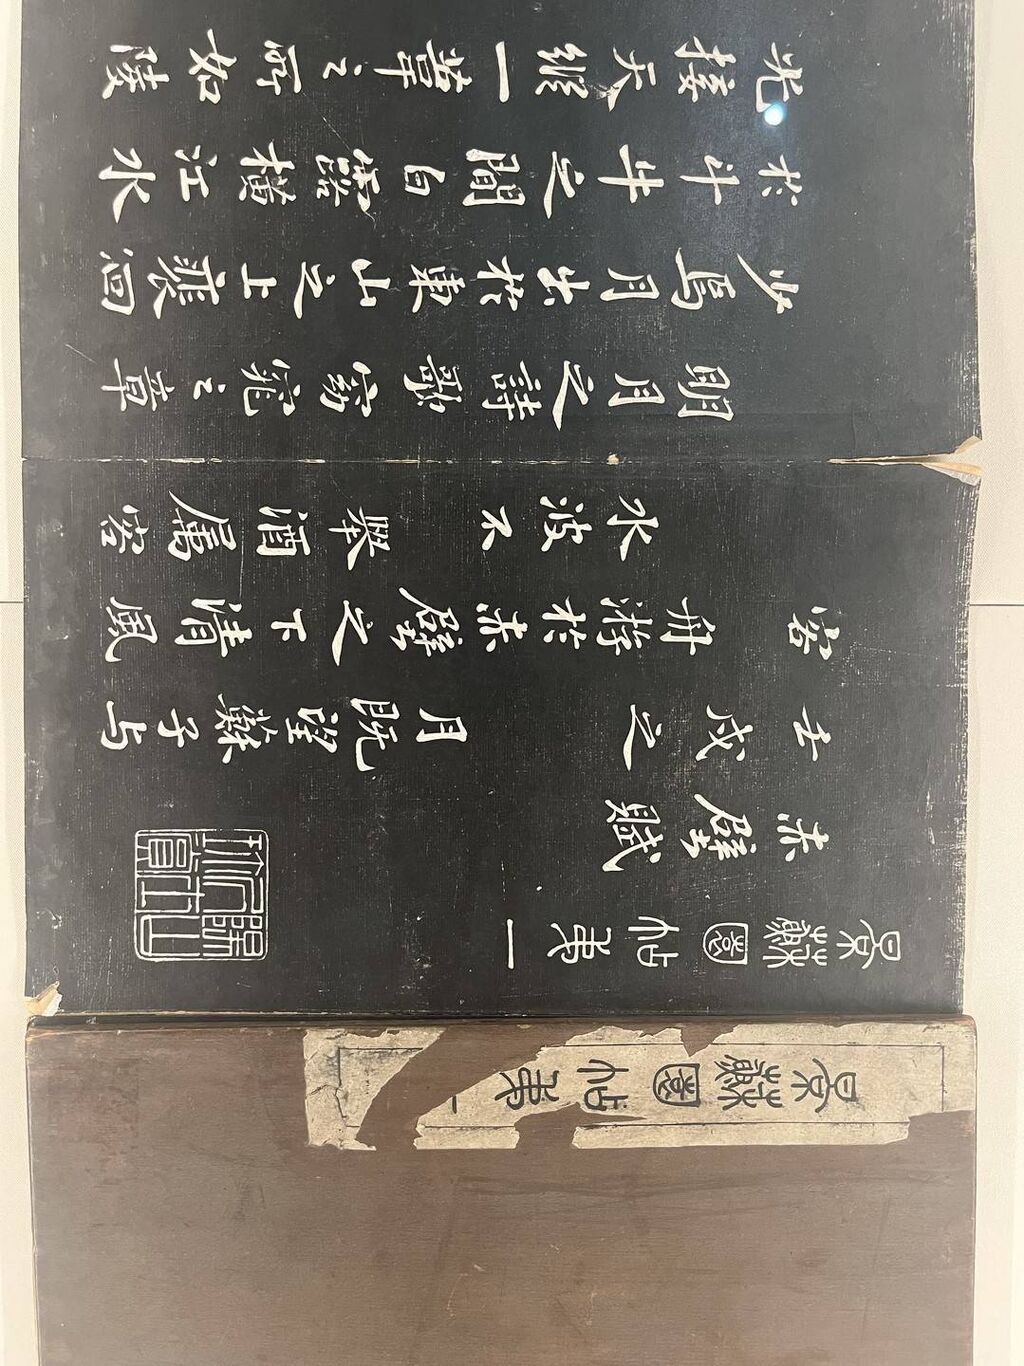 景蘇園帖弟一
景蘇園帖弟一
赤壁賦
壬戌之月既望蘇子与
客舟游於赤壁之下清風
水波不舉酒屬客
明月之詩歌窈窕之章
少焉月出於東山之上裴徊
於斗牛之間白露橫江水
光接天縱一葦之所如陵